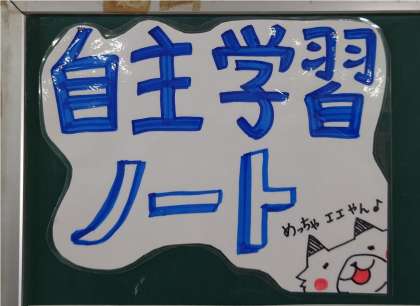 自主学習
ノート
めっちゃ エエやん♪